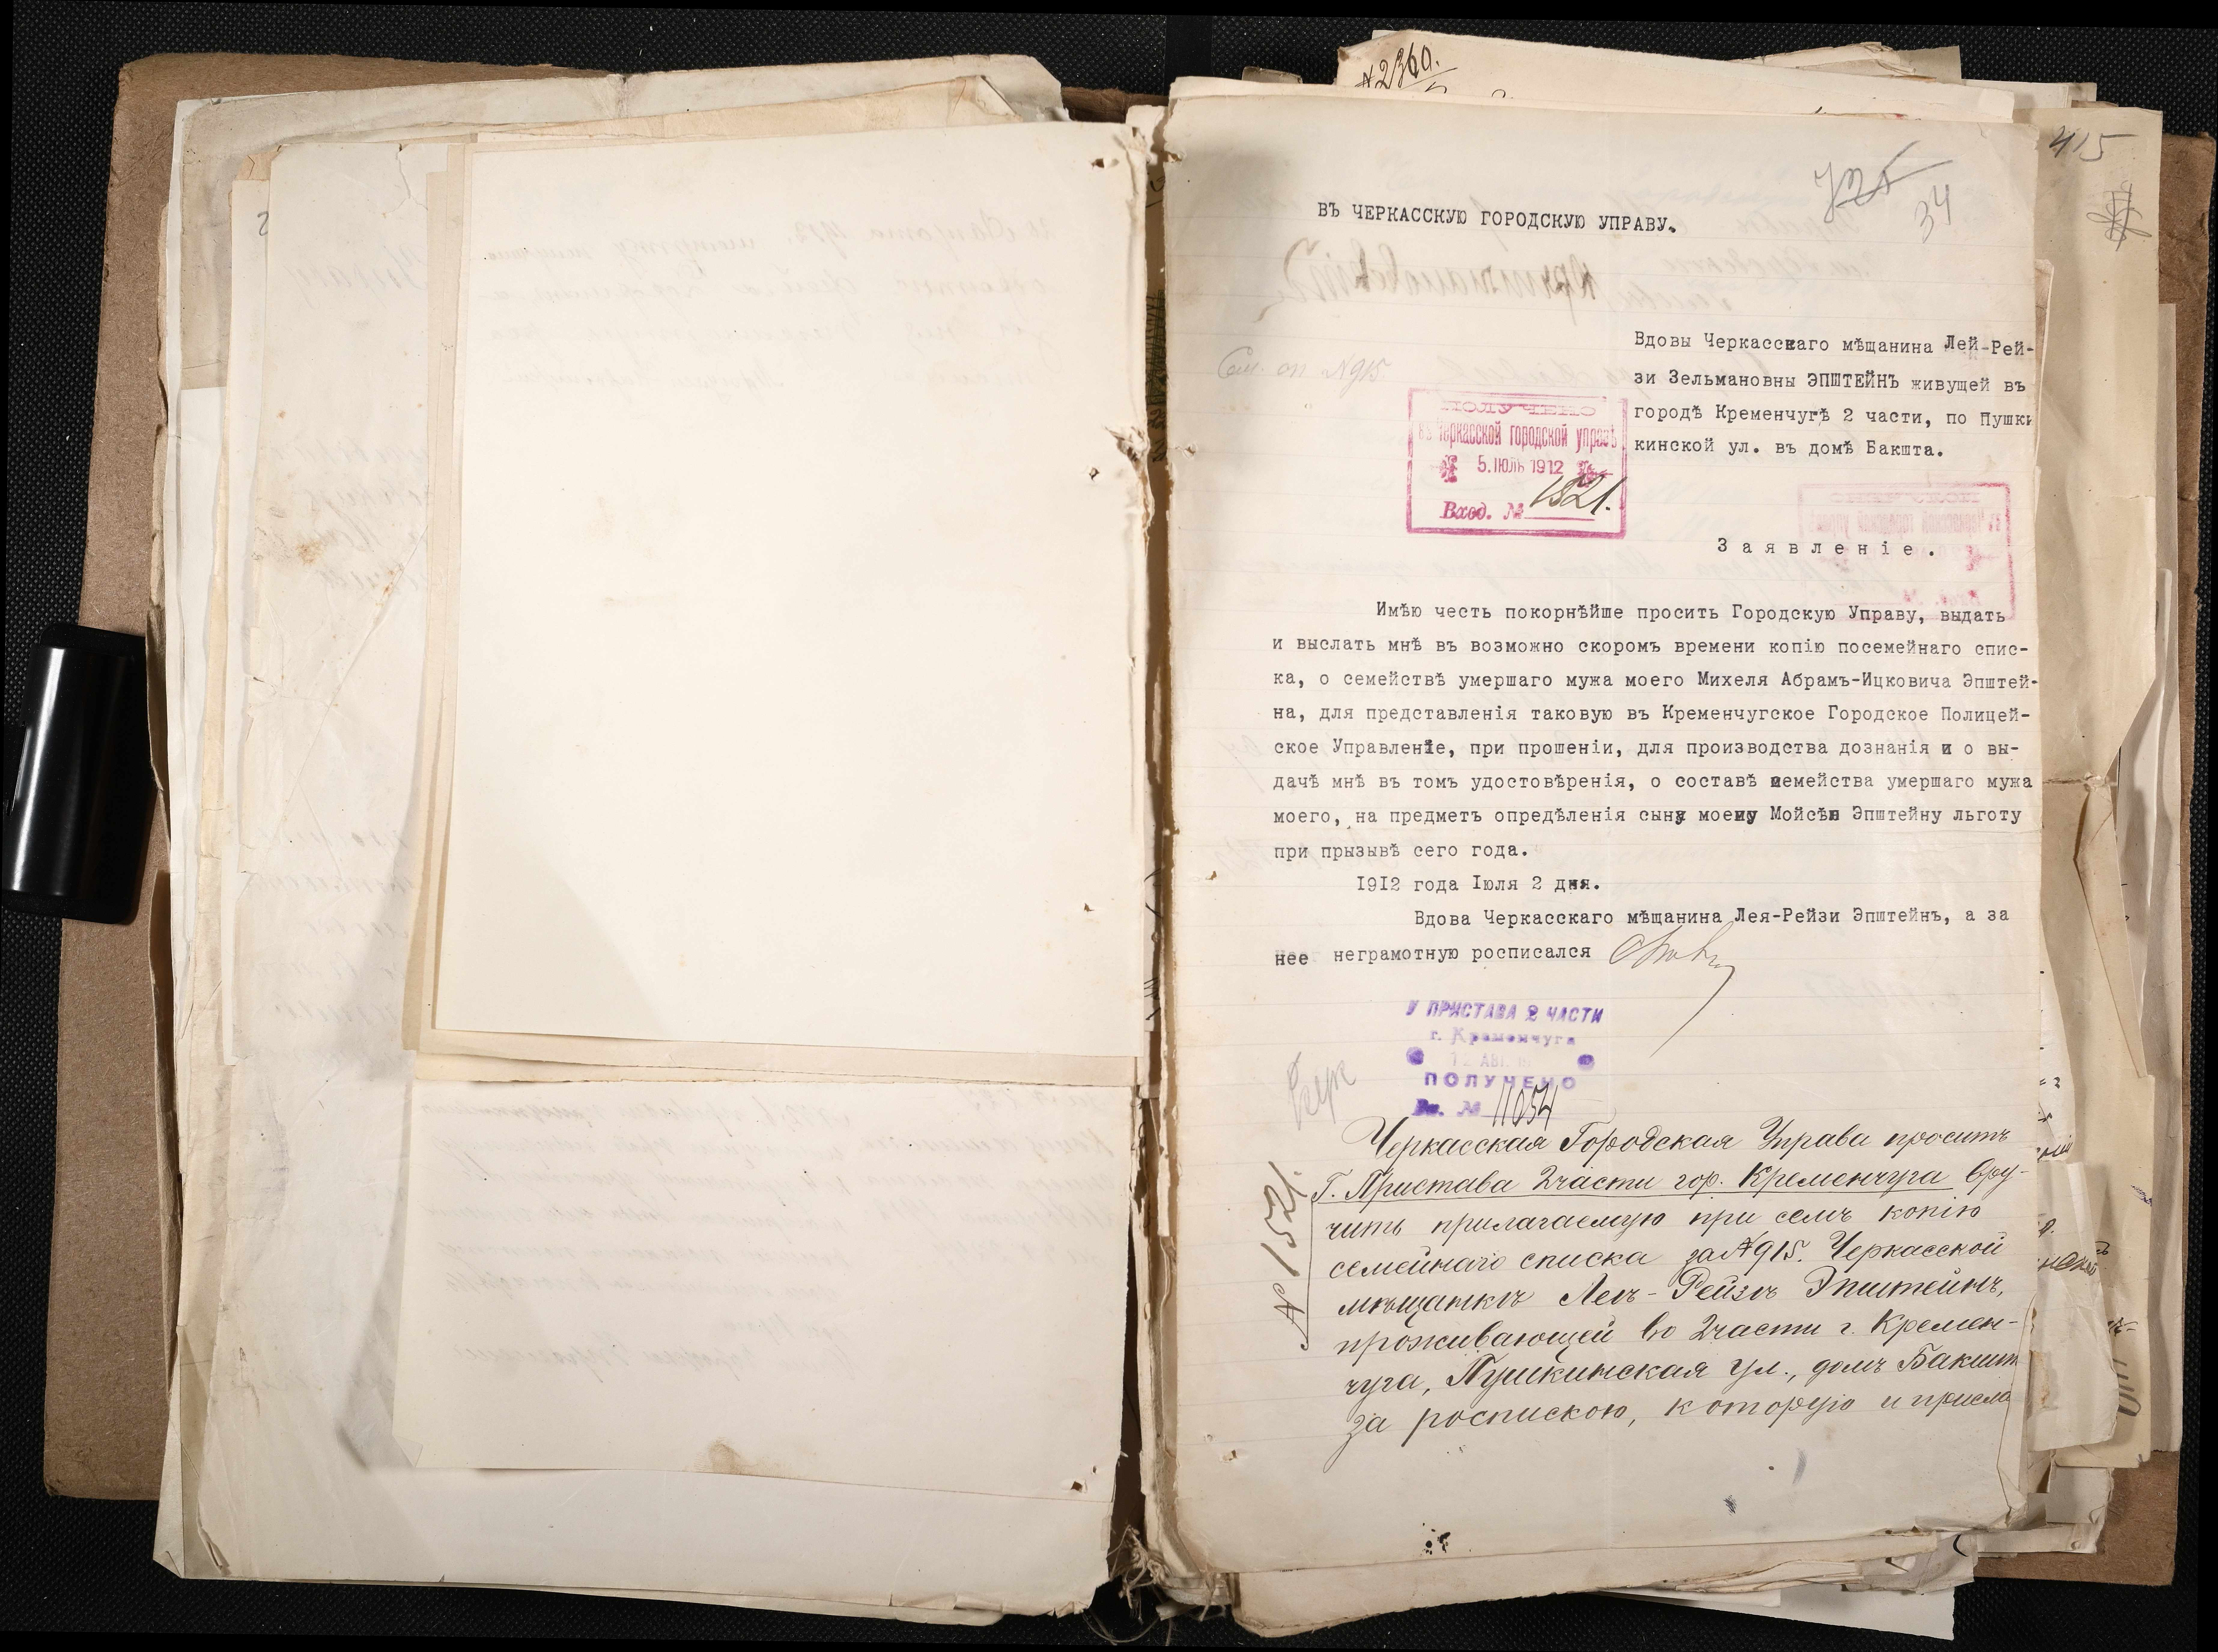 №2360.
415
725
34
ВЪ ЧЕРКАССКУЮ ГОРОДСКУЮ УПРАВУ.
Вдовы Черкасскаго мѣщанина Лей-Рей-
зи Зельмановны ЭПШТЕЙНЪ живущей въ
городѣ Кременчугѣ 2 части, по Пушки
кинской ул. въ домѣ Бакшта.
Сем. сп №915
ПОЛУЧЕНО
въ Черкасской городской управѣ
5. ІЮЛЬ 1912
Вход. № 1521.
Заявленіе.
Имѣю честь покорнѣйше просить Городскую Управу, выдать
и выслать мнѣ въ возможно скоромъ времени копію посемейнаго спис-
ка, о семействѣ умершаго мужа моего Михеля Абрамъ-Ицковича Эпштей-
на, для представленія таковую въ Кременчугское Городское Полицей-
ское Управленіе, при прошеніи, для производства дознанія и о вы-
дачѣ мнѣ въ томъ удостовѣренія, о составѣ семейства умершаго мужа
моего, на предметъ опредѣленія сыну моему Мойсѣю Эпштейну льготу
при прызывѣ сего года.
1912 года Іюля 2 дня.
Вдова Черкасскаго мѣщанина Лея-Рейзи Эпштейнъ, а за
нее неграмотную росписался
У ПРИСТАВА 2 ЧАСТИ
г. Кременчуга
12 АВГ.
ПОЛУЧЕНО
Вх. № 11054
№ 1521.
Черкасская Городская Управа проситъ
Г. Пристава 2 части гор. Кременчуга вру-
чить прилагаемую при семъ копію
семейнаго списка за №915. Черкасской
мѣщанкѣ Леѣ-Рейзѣ Эпштейнъ,
проживающей во 2 части г. Кремен-
чуга, Пушкинская ул., домъ Бакшт
за роспискою, которую и присла